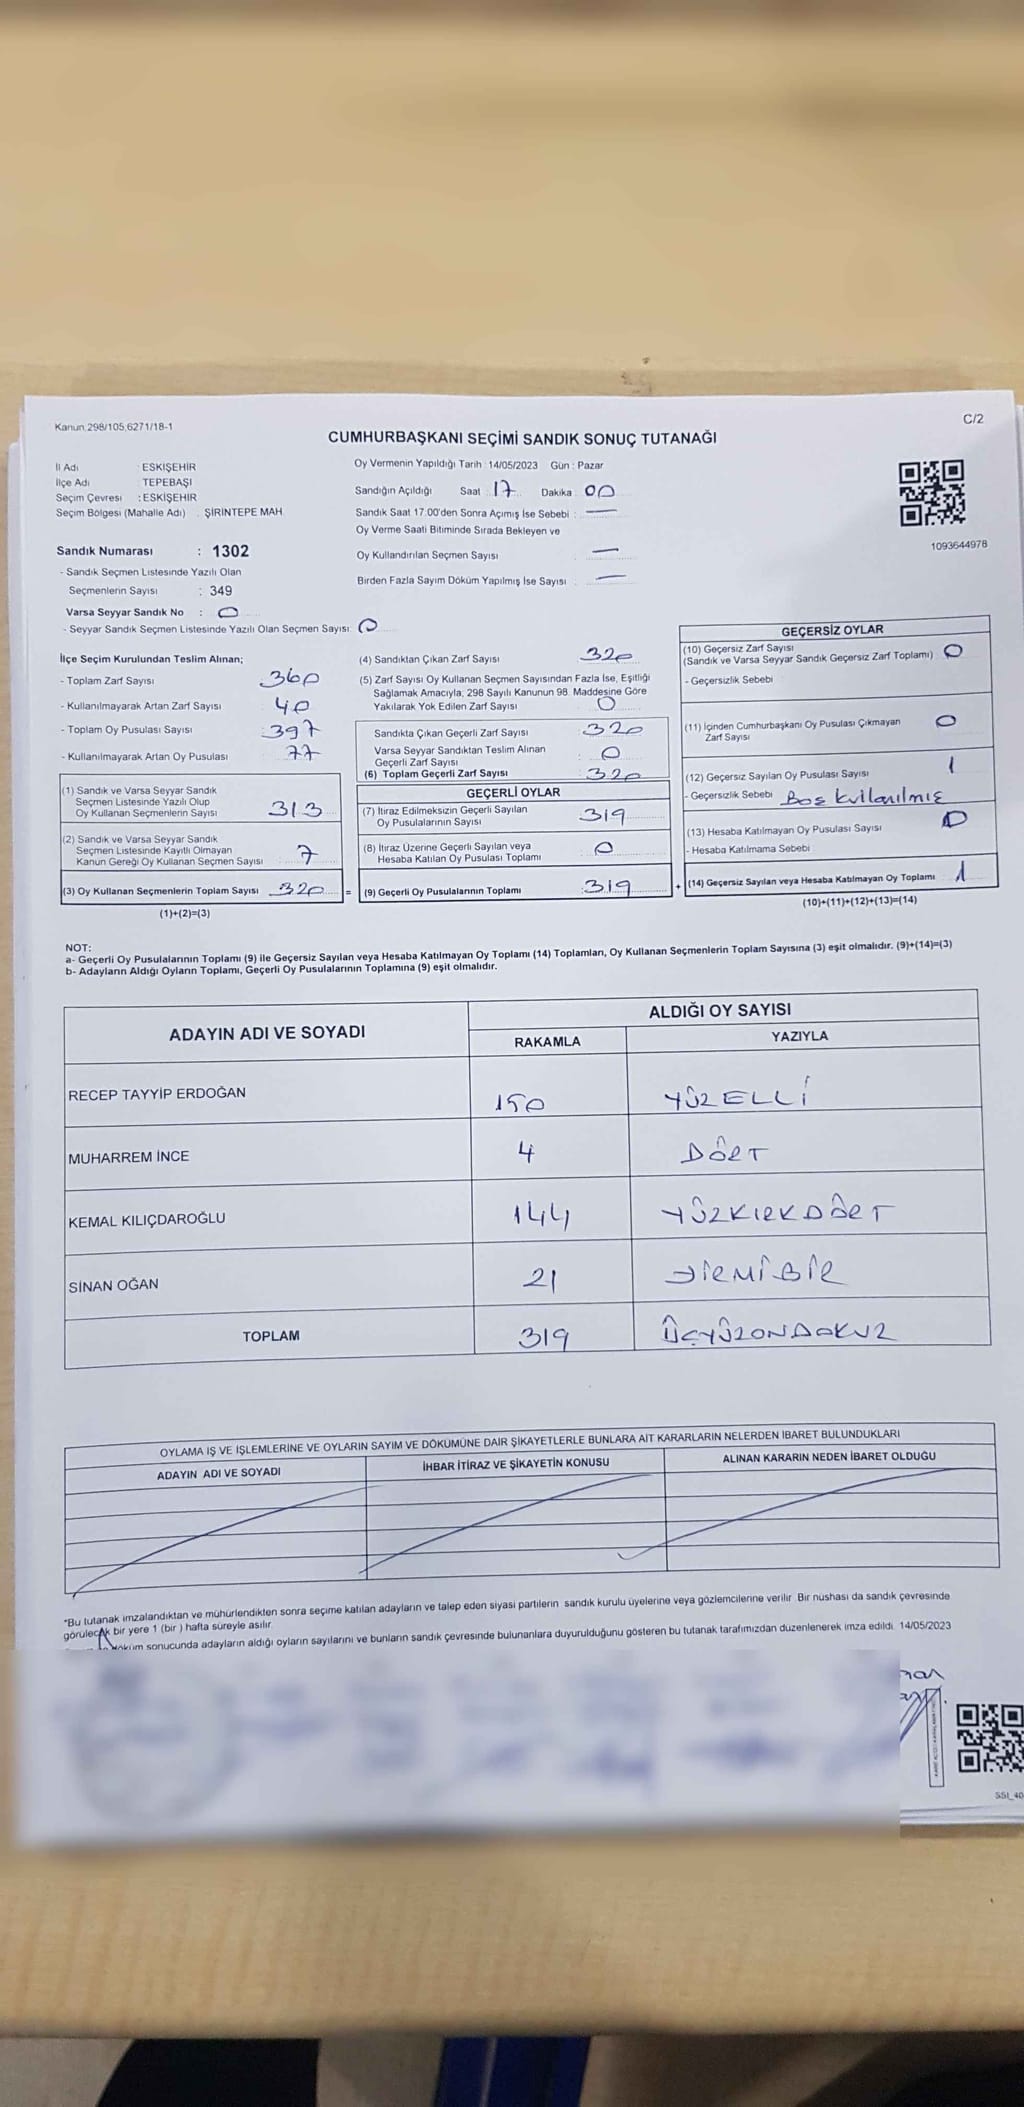 Kanun 298/105,6271/18-1
C/2
CUMHURBAŞKANI SEÇİMİ SANDIK SONUÇ TUTANAĞI
İl Adı : ESKİŞEHİR
İlçe Adı : TEPEBAŞI
Seçim Çevresi : ESKİŞEHİR
Seçim Bölgesi (Mahalle Adı) : ŞİRİNTEPE MAH
Oy Vermenin Yapıldığı Tarih : 14/05/2023 Gün : Pazar
Sandığın Açıldığı Saat : 17 Dakika : 00
Sandık Saat 17.00'den Sonra Açımış İse Sebebi : —
Oy Verme Saati Bitiminde Sırada Bekleyen ve
Oy Kullandırılan Seçmen Sayısı : —
Birden Fazla Sayım Döküm Yapılmış İse Sayısı : —
1093644978
Sandık Numarası : 1302
- Sandık Seçmen Listesinde Yazılı Olan
Seçmenlerin Sayısı : 349
Varsa Seyyar Sandık No : 0
- Seyyar Sandık Seçmen Listesinde Yazılı Olan Seçmen Sayısı: 0
İlçe Seçim Kurulundan Teslim Alınan;
- Toplam Zarf Sayısı : 360
- Kullanılmayarak Artan Zarf Sayısı : 40
- Toplam Oy Pusulası Sayısı : 397
- Kullanılmayarak Artan Oy Pusulası : 77
(1) Sandık ve Varsa Seyyar Sandık
Seçmen Listesinde Yazılı Olup
Oy Kullanan Seçmenlerin Sayısı : 313
(2) Sandık ve Varsa Seyyar Sandık
Seçmen Listesinde Kayıtlı Olmayan
Kanun Gereği Oy Kullanan Seçmen Sayısı : 7
(3) Oy Kullanan Seçmenlerin Toplam Sayısı : 320 =
(1)+(2)=(3)
(4) Sandıktan Çıkan Zarf Sayısı : 320
(5) Zarf Sayısı Oy Kullanan Seçmen Sayısından Fazla İse, Eşitliği
Sağlamak Amacıyla, 298 Sayılı Kanunun 98. Maddesine Göre
Yakılarak Yok Edilen Zarf Sayısı : 0
Sandıkta Çıkan Geçerli Zarf Sayısı : 320
Varsa Seyyar Sandıktan Teslim Alınan
Geçerli Zarf Sayısı : 0
(6) Toplam Geçerli Zarf Sayısı : 320
GEÇERLİ OYLAR
(7) İtiraz Edilmeksizin Geçerli Sayılan
Oy Pusulalarının Sayısı : 319
(8) İtiraz Üzerine Geçerli Sayılan veya
Hesaba Katılan Oy Pusulası Toplamı : 0
(9) Geçerli Oy Pusulalarının Toplamı : 319 +
GEÇERSİZ OYLAR
(10) Geçersiz Zarf Sayısı
(Sandık ve Varsa Seyyar Sandık Geçersiz Zarf Toplamı) : 0
- Geçersizlik Sebebi
(11) İçinden Cumhurbaşkanı Oy Pusulası Çıkmayan
Zarf Sayısı : 0
(12) Geçersiz Sayılan Oy Pusulası Sayısı : 1
- Geçersizlik Sebebi : Boş kullanılmış
(13) Hesaba Katılmayan Oy Pusulası Sayısı : 0
- Hesaba Katılmama Sebebi
(14) Geçersiz Sayılan veya Hesaba Katılmayan Oy Toplamı : 1
(10)+(11)+(12)+(13)=(14)
NOT:
a- Geçerli Oy Pusulalarının Toplamı (9) ile Geçersiz Sayılan veya Hesaba Katılmayan Oy Toplamı (14) Toplamları, Oy Kullanan Seçmenlerin Toplam Sayısına (3) eşit olmalıdır. (9)+(14)=(3)
b- Adayların Aldığı Oyların Toplamı, Geçerli Oy Pusulalarının Toplamına (9) eşit olmalıdır.
ADAYIN ADI VE SOYADI ALDIĞI OY SAYISI
RAKAMLA YAZIYLA
RECEP TAYYİP ERDOĞAN 150 YÜZELLİ
MUHARREM İNCE 4 DÖRT
KEMAL KILIÇDAROĞLU 144 YÜZKIRKDÖRT
SİNAN OĞAN 21 YİRMİBİR
TOPLAM 319 ÜÇYÜZONDOKUZ
OYLAMA İŞ VE İŞLEMLERİNE VE OYLARIN SAYIM VE DÖKÜMÜNE DAİR ŞİKAYETLERLE BUNLARA AİT KARARLARIN NELERDEN İBARET BULUNDUKLARI
ADAYIN ADI VE SOYADI İHBAR İTİRAZ VE ŞİKAYETİN KONUSU ALINAN KARARIN NEDEN İBARET OLDUĞU
*Bu tutanak imzalandıktan ve mühürlendikten sonra seçime katılan adayların ve talep eden siyasi partilerin sandık kurulu üyelerine veya gözlemcilerine verilir. Bir nüshası da sandık çevresinde
görülecek bir yere 1 (bir) hafta süreyle asılır.
döküm sonucunda adayların aldığı oyların sayılarını ve bunların sandık çevresinde bulunanlara duyurulduğunu gösteren bu tutanak tarafımızdan düzenlenerek imza edildi. 14/05/2023
SSI_40